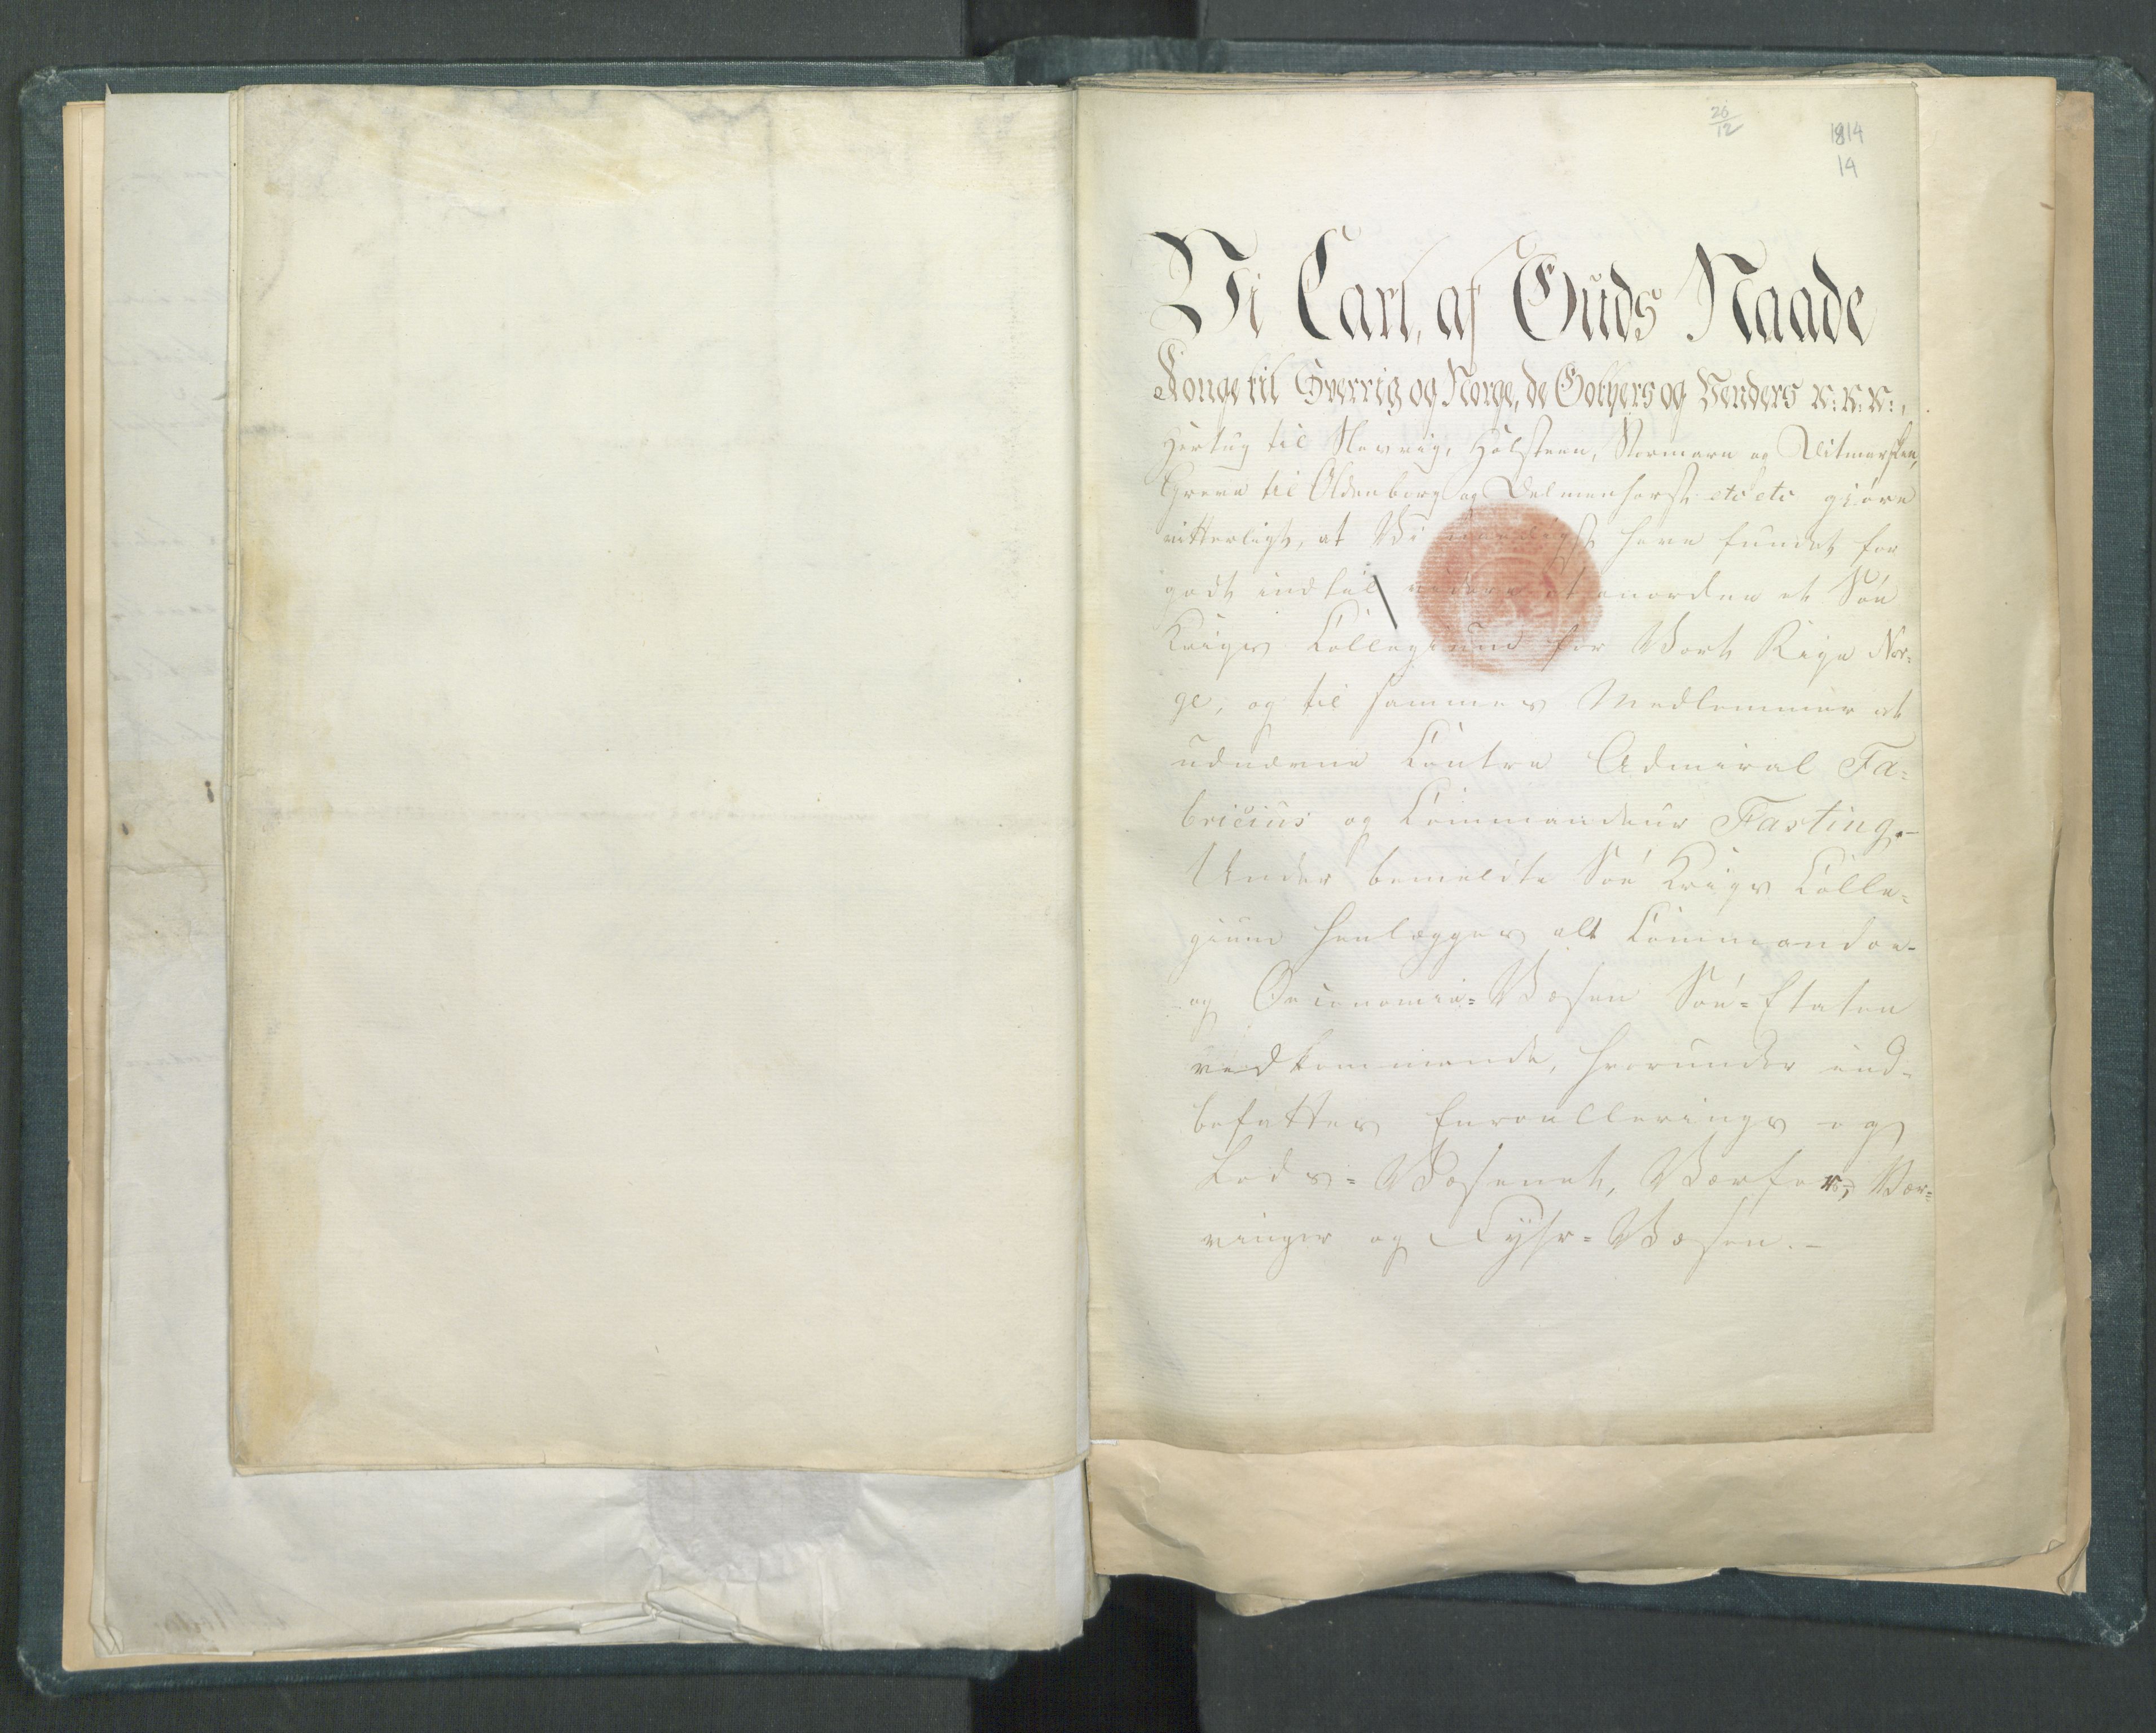 26/12
1814
14
Vi Carl, af Guds Naade
Konge til Sverrig og Norge, de Gothers og Venders &: &: &:,
Hertug til Slesvig, Holsteen, Stormarn og Ditmarsken,
Greve til Oldenborg og Delmenhorst etc etc giöre
vitterligt, at Vi naadigst have fundet for
godt indtil videre at anordne et Söe
Krigs Collegium for Vort Rige Nor=
ge, og til sammes Medlemmer at
udnævne Contre Admiral Fa=
bricius og Commandeur Fasting.—
Under bemeldte Söe Krigs Colle=
gium henlægges alt Commandoe-
og Oeconomie=Væsen Söe=Etaten
vedkommende, hvorunder ind=
befattes Enroullerings og
Lods=Væsenet, Værfter, Vær=
vinger og Fyhr=Væsen.—